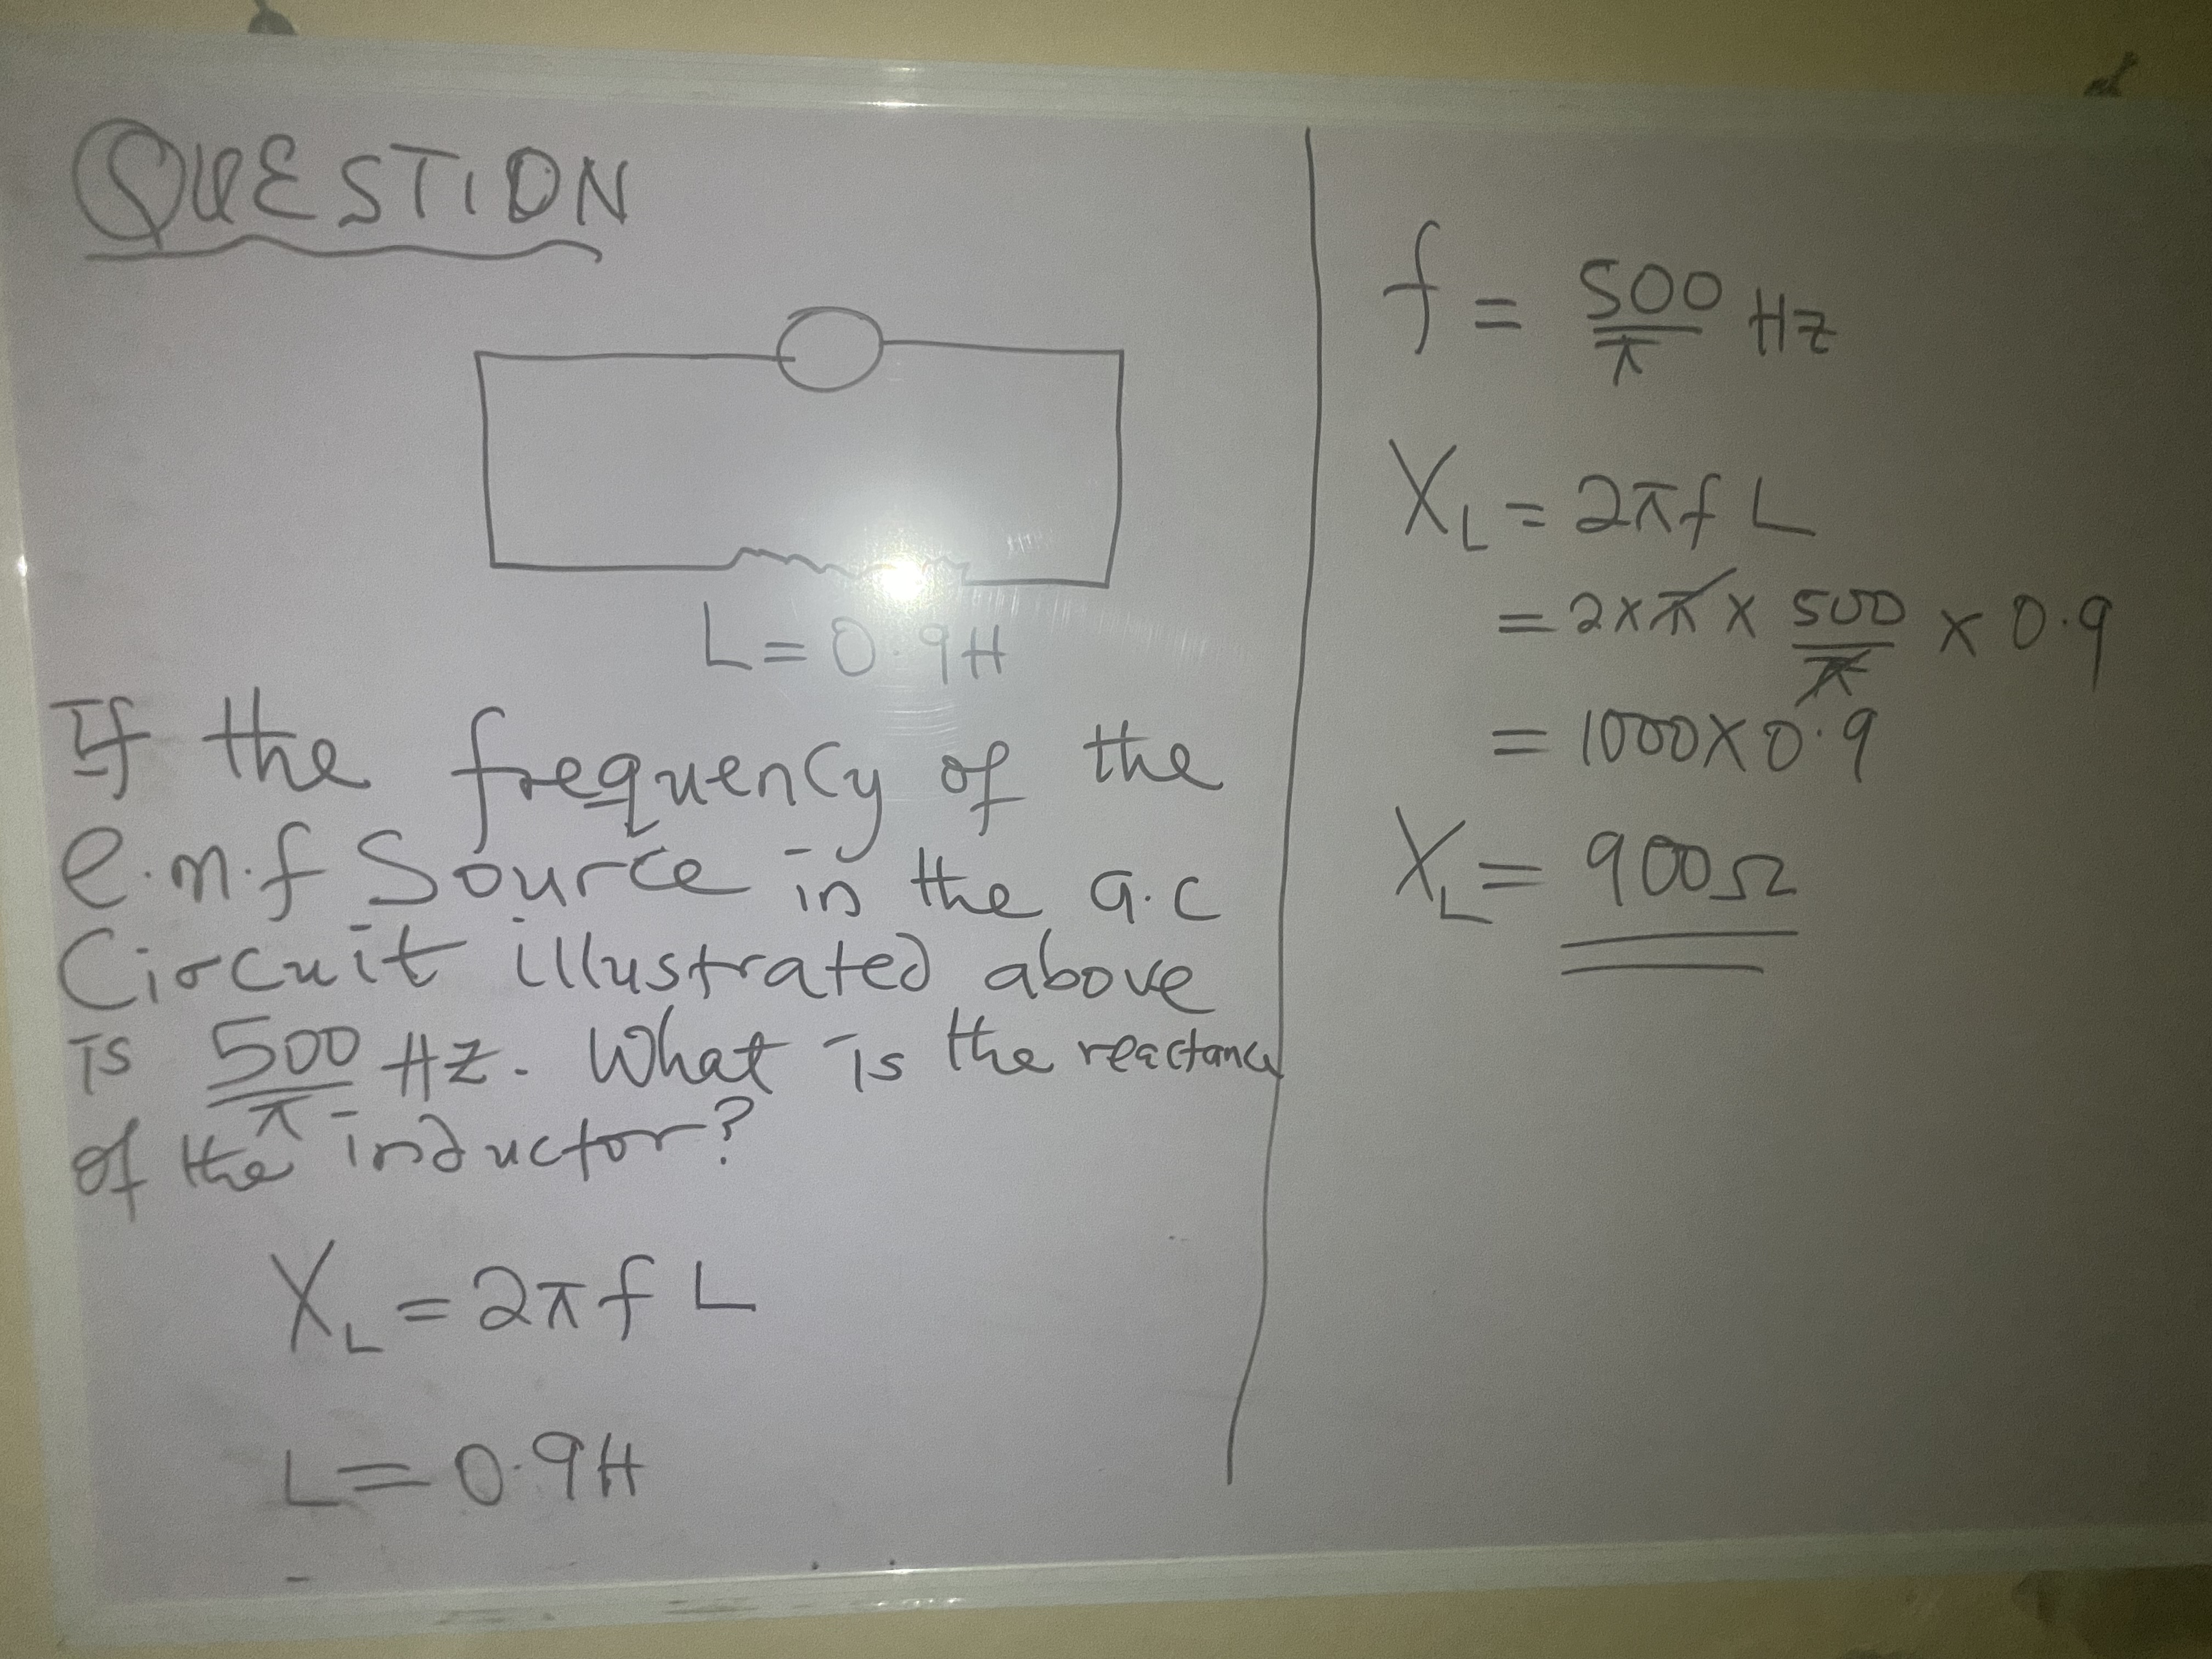 QUESTION
L = 0.9H
If the frequency of the
e.m.f Source in the a.c
Circuit illustrated above
is 500/π Hz. What is the reactance
of the inductor?
X_L = 2πf L
L = 0.9H
f = 500/π Hz
X_L = 2πf L
= 2 x π x 500/π x 0.9
= 1000 x 0.9
X_L = 900Ω